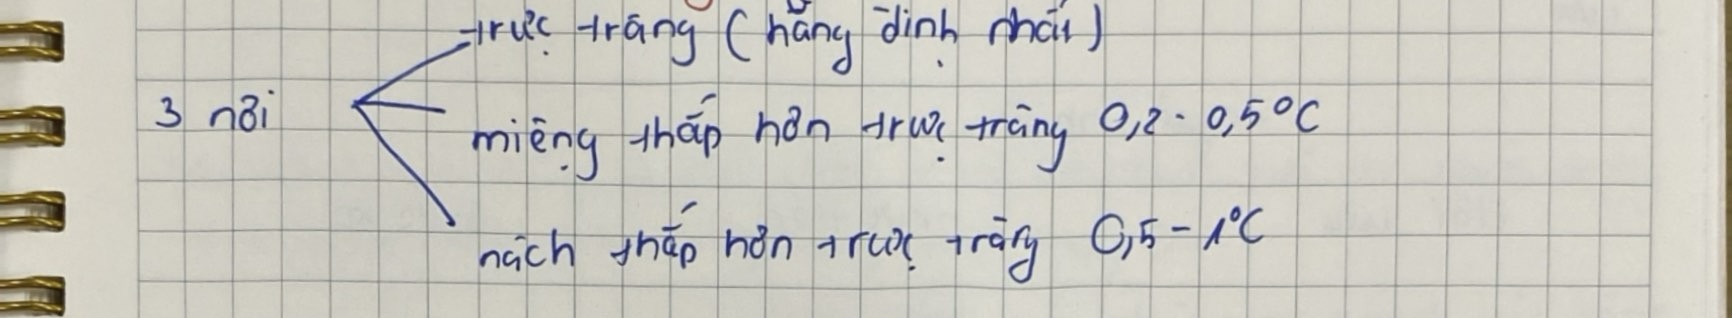 trực tràng (hằng định nhất)
3 nơi
miệng thấp hơn trực tràng 0,2 - 0,5°C
nách thấp hơn trực tràng 0,5 - 1°C